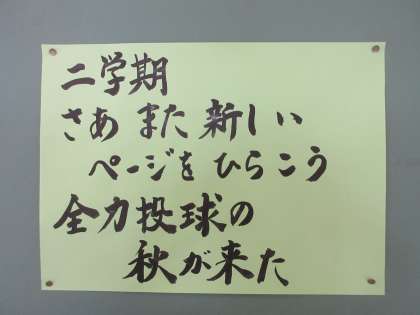 二学期
さあ また 新しい
ページを ひらこう
全力投球の
秋が来た